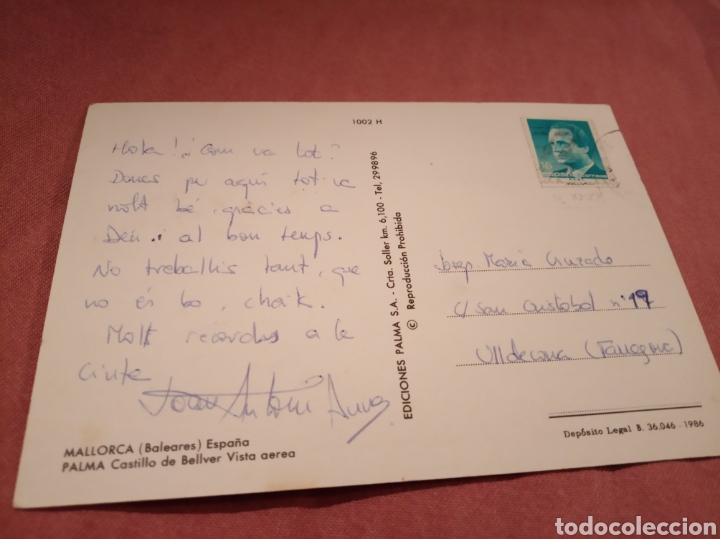 1002 H
Hola! Com va tot?
Doncs per aquí tot va
molt bé, gràcies a
Déu i al bon temps.
No treballis tant, que
no és bo,
Molt recordos a la
Cinta
Joan Antoni
EDICIONES PALMA S.A. - Crta. Soller km. 6,100 - Tel, 299896
© Reproducción Prohibida
Josep Maria
c/ San Cristobal nº 19
Ulldecona (Tarragona)
MALLORCA (Baleares) España
PALMA Castillo de Bellver Vista aerea
Depósito Legal B. 36.046 - 1986
todocoleccion